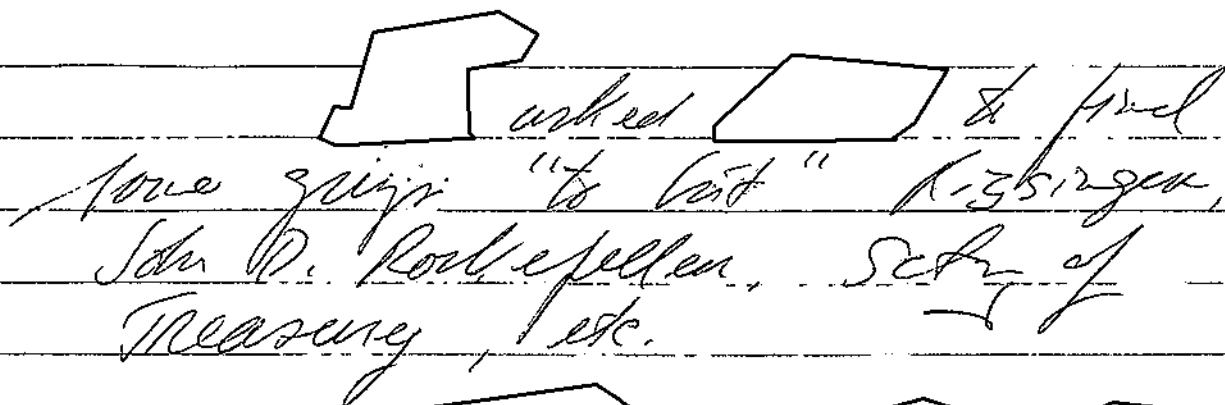 asked to find
some guys "to hit" Kissinger,
John D. Rockefeller, Sctry of
Treasury, etc.